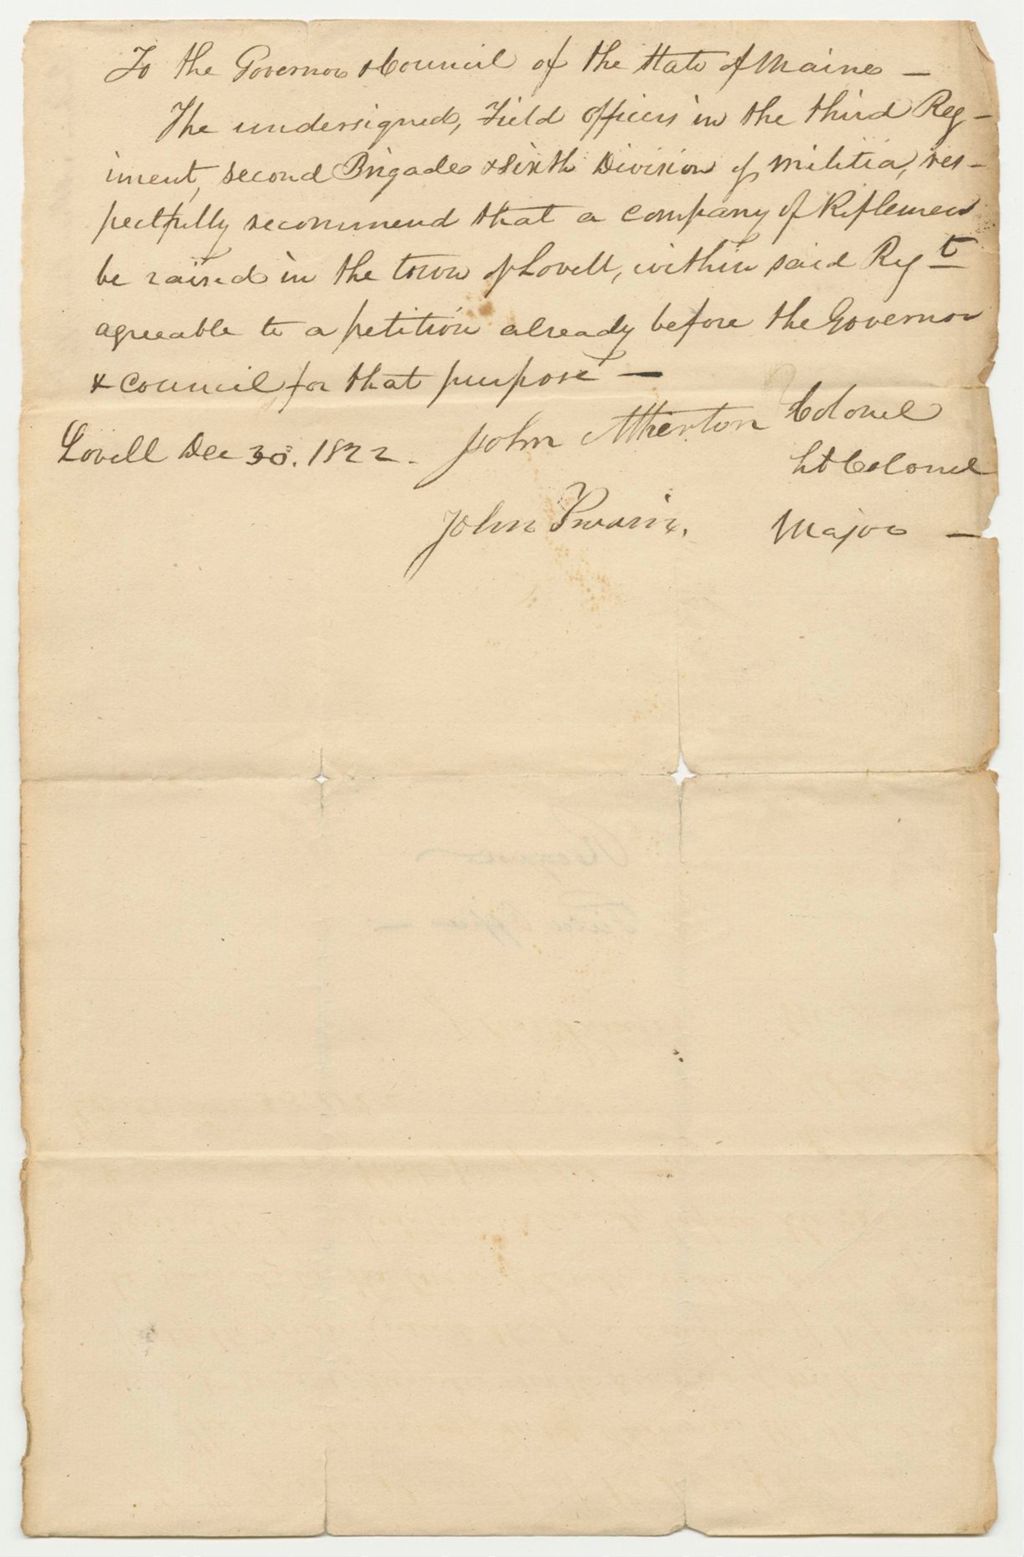 To the Governor & Council of the State of Maine —
The undersigned, Field officers in the third Reg-
iment, second Brigade & Sixth Division of Militia, res-
pectfully recommend that a company of Riflemen
be raised in the town of Lovell, within said Regt
agreeable to a petition already before the Governor
& Council for that purpose —
Lovell Dec 30. 1822. John Atherton Colonel
Lt Colonel
John Major —